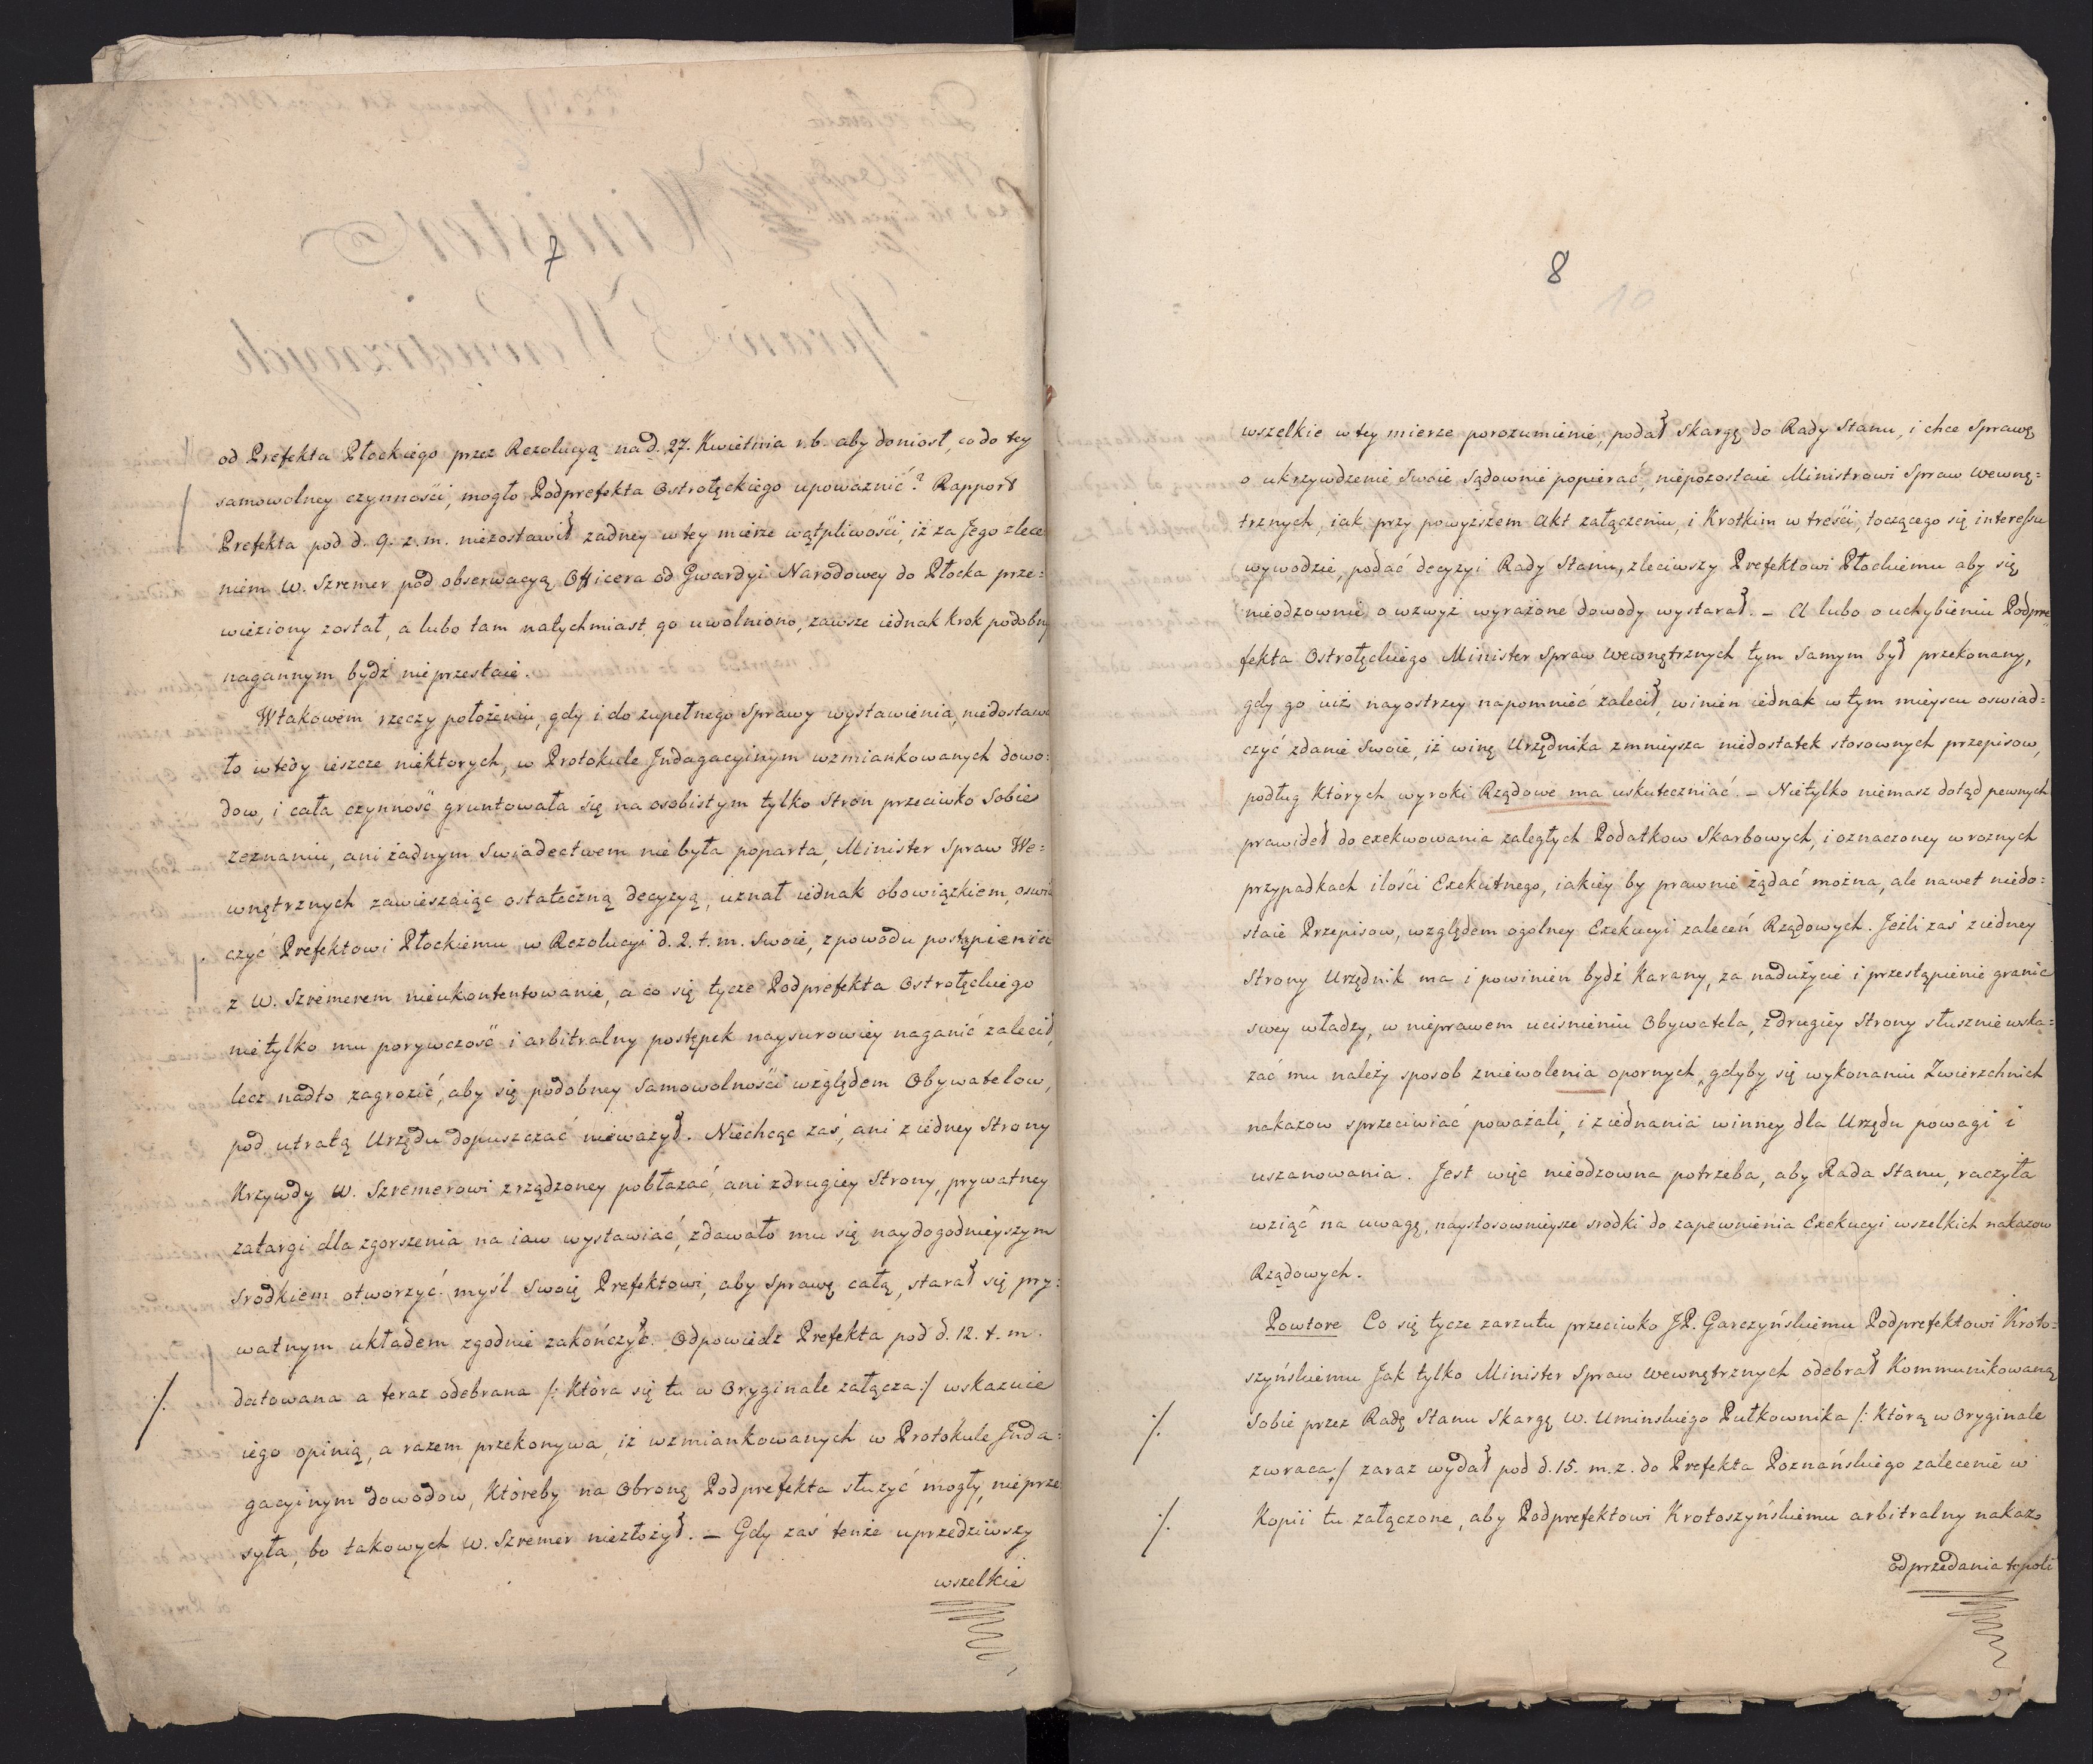 7
od Prefekta Płockiego przez Rezolucyą na d. 27. Kwietnia r. b. aby doniosł, co do tey
samowolney czynności, mogło Podprefekta Ostrołęckiego upoważnić? Rapport
Prefekta pod d. 9. z. m. niezostawił żadney w tey mierze wątpliwości, iż za Jego zlece
niem W. Szremer pod obserwacyą Officera od Gwardyi Narodowey do Płocka prze=
wieziony został, a lubo tam natychmiast go uwolniono, zawsze iednak krok podobny
nagannym bydź nieprzestaie.
W takowem rzeczy położeniu, gdy i do zupełnego Sprawy wystawienia, niedostawa
ło wtedy ieszcze niektorych, w Protokule Indagacyinym wzmiankowanych dowo=
dow, i cała czynność gruntowała się na osobistym tylko Stron przeciwko Sobie
zeznaniu, ani żadnym Swiadectwem nie była poparta, Minister Spraw We=
wnętrznych zawieszaiąc ostateczną decyzyą, uznał iednak obowiązkiem, oswia
czyć Prefektowi Płockiemu w Rezolucyi d. 2. t. m. Swoie, z powodu postąpienia
z W. Szremerem nieukontentowanie, a co się tycze Podprefekta Ostrołęckiego
nietylko mu porywczość i arbitralny postępek naysurowiey naganić zalecił,
lecz nadto zagrozić, aby się podobney Samowolności względem Obywatelow,
pod utratą Urzędu dopuszczać nieważył. Niechcąc zaś, ani z iedney Strony
Krzywdy W. Szremerowi zrządzoney pobłażać, ani z drugiey Strony, prywatney
zatargi dla zgorszenia na iaw wystawiać, zdawało mu się naydogodnieyszym
Srodkiem otworzyć myśl Swoię Prefektowi, aby Sprawę całą, starał się pry=
watnym układem zgodnie zakończyć. Odpowiedz Prefekta pod d. 12. t. m.
./. datowana a teraz odebrana /: Która się tu w Oryginale załącza :/ wskazuie
iego opinią, a razem przekonywa, iż wzmiankowanych w Protokule Inda=
gacyinym dowodow, Któreby na Obronę Podprefekta służyć mogły, nieprze
syła, bo takowych W. Szremer niezłożył. _ Gdy zaś tenże uprzedziwszy
wszelkie
8
10
wszelkie w tey mierze porozumienie, podał Skargę do Rady Stanu, i chce Sprawę
o ukrzywdzenie Swoie Sądownie popierać, niepozostaie Ministrowi Spraw Wewnę=
trznych, iak przy powyższem Akt załączeniu, i Krotkim w treści, toczącego się interessu
wywodzie, podać decyzyi Rady Stanu, zleciwszy Prefektowi Płockiemu aby się
nieodzownie o wzwyż wyrażone dowody wystarał. _ A lubo o uchybieniu Podpre
fekta Ostrołęckiego Minister Spraw Wewnętrznych tym Samym był przekonany,
gdy go iuż nayostrzey napomnieć zalecił, winien iednak w tym mieyscu oswiad=
czyć zdanie Swoie, iż winę Urzędnika zmnieysza niedostatek stosownych przepisow,
podług Których wyroki Rządowe ma uskuteczniać. _ Nietylko niemasz dotąd pewnych
prawideł do exekwowania zaległych Podatkow Skarbowych, i oznaczoney w roznych
przypadkach ilości Exekutnego, iakiéy by prawnie żądać można, ale nawet niedo=
staie Przepisow, względem ogolney Exekucyi zaleceń Rządowych. Jeżli zaś z iedney
Strony Urzędnik ma i powinien bydź Karany, za nadużycie i przestąpienie granic
swey władzy, w nieprawem uciśnieniu Obywatela, z drugiey Strony słusznie wska=
zać mu należy sposob zniewolenia opornych, gdyby się wykonaniu Zwierzchnich
nakazow sprzeciwiać poważali, i ziednania winney dla Urzędu powagi i
uszanowania. Jest więc nieodzowna potrzeba, aby Rada Stanu, raczyła
wziąć na uwagę, naystosownieysze srodki do zapewnienia Exekucyi wszelkich nakazow
Rządowych.
Powtore Co się tycze zarzutu przeciwko JP. Garczyńskiemu Podprefektowi Kroto=
szyńskiemu Jak tylko Minister Spraw Wewnętrznych odebrał Kommunikowaną
./. Sobie przez Radę Stanu Skargę W. Uminskiego Pułkownika /: Którą w Oryginale
zwraca :/ zaraz wydał pod d. 15. m. z. do Prefekta Poznańskiego zalecenie w
./. Kopii tu załączone, aby Podprefektowi Krotoszyńskiemu arbitralny nakaz